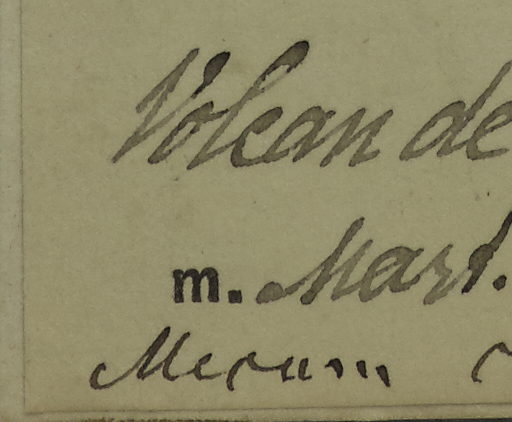 Volcan de
m. Mart.
Merum